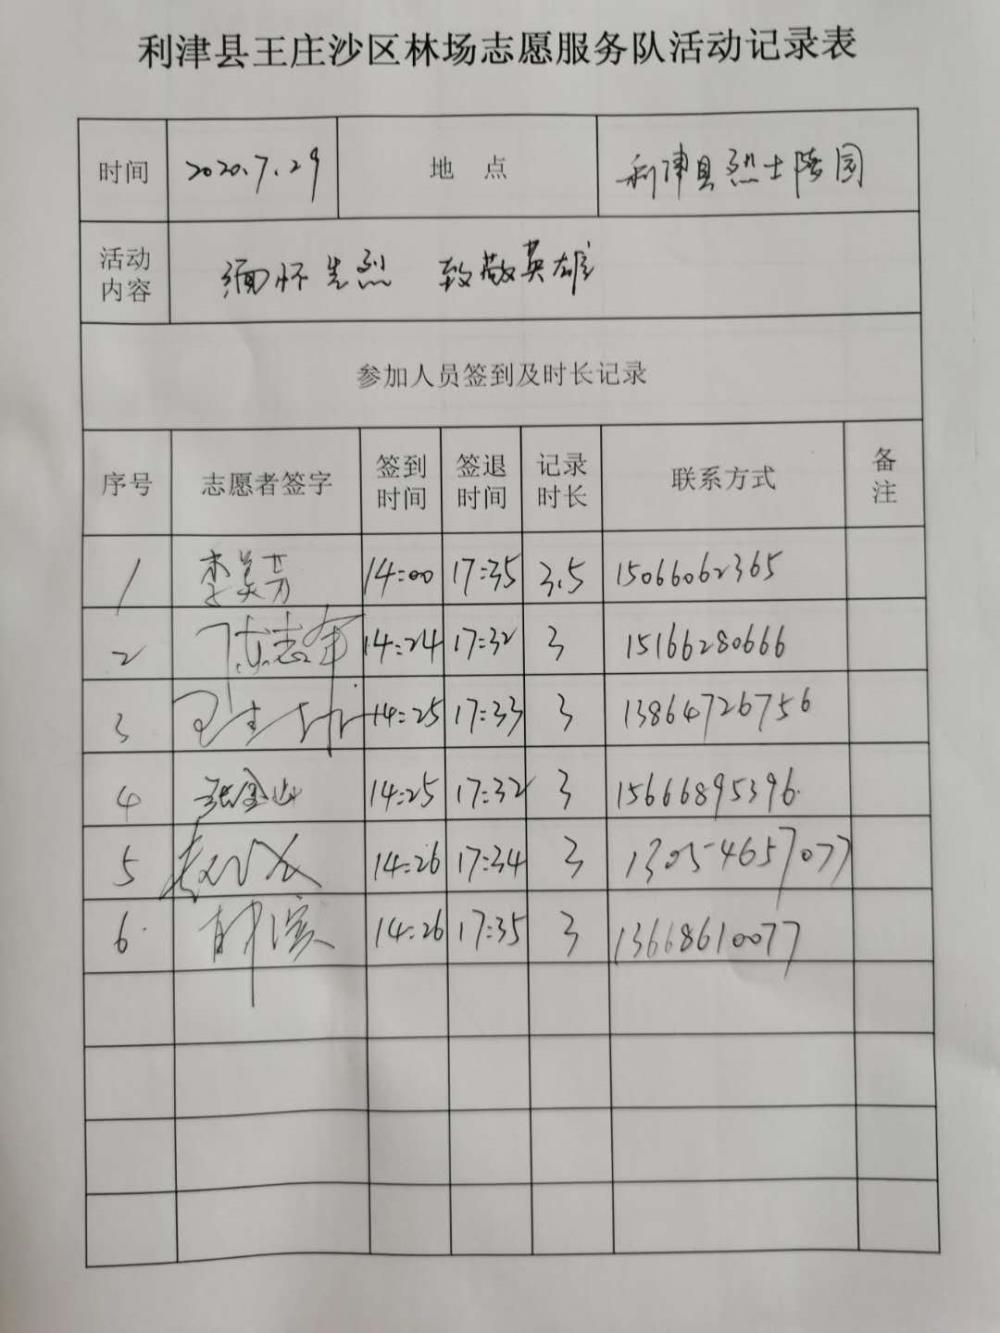 利津县王庄沙区林场志愿服务队活动记录表
时间 2020.7.29 地 点 利津县烈士陵园
活动内容 缅怀先烈 致敬英雄
参加人员签到及时长记录
序号 志愿者签字 签到时间 签退时间 记录时长 联系方式 备注
1 李美芳 14:00 17:35 3.5 15066062365
2 陈志军 14:24 17:32 3 15166280666
3 14:25 17:33 3 13864726756
4 张金山 14:25 17:32 3 15666895396
5 14:26 17:34 3 13054657077
6 14:26 17:35 3 13668610077